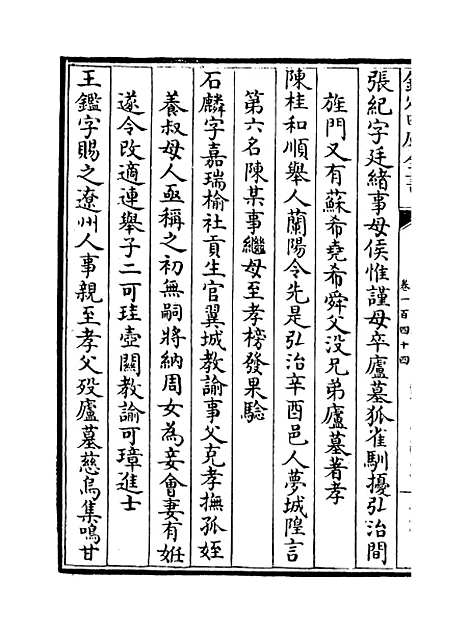 欽定四庫全書
卷一百四十四
張紀字廷緒事母侯惟謹母卒廬墓狐雀馴擾弘治間
旌門又有蘇希堯希舜父没兄弟廬墓著孝
陳桂和順舉人蘭陽令先是弘治辛酉邑人夢城隍言
第六名陳某事繼母至孝榜發果驗
石麟字嘉瑞榆社貢生官翼城教諭事父克孝撫孤姪
養叔母人亟稱之初無嗣將納周女為妾會妻有娠
遂令改適連舉子二可珪壺關教諭可璋進士
王鑑字賜之遼州人事親至孝父殁廬墓慈烏集鳴甘